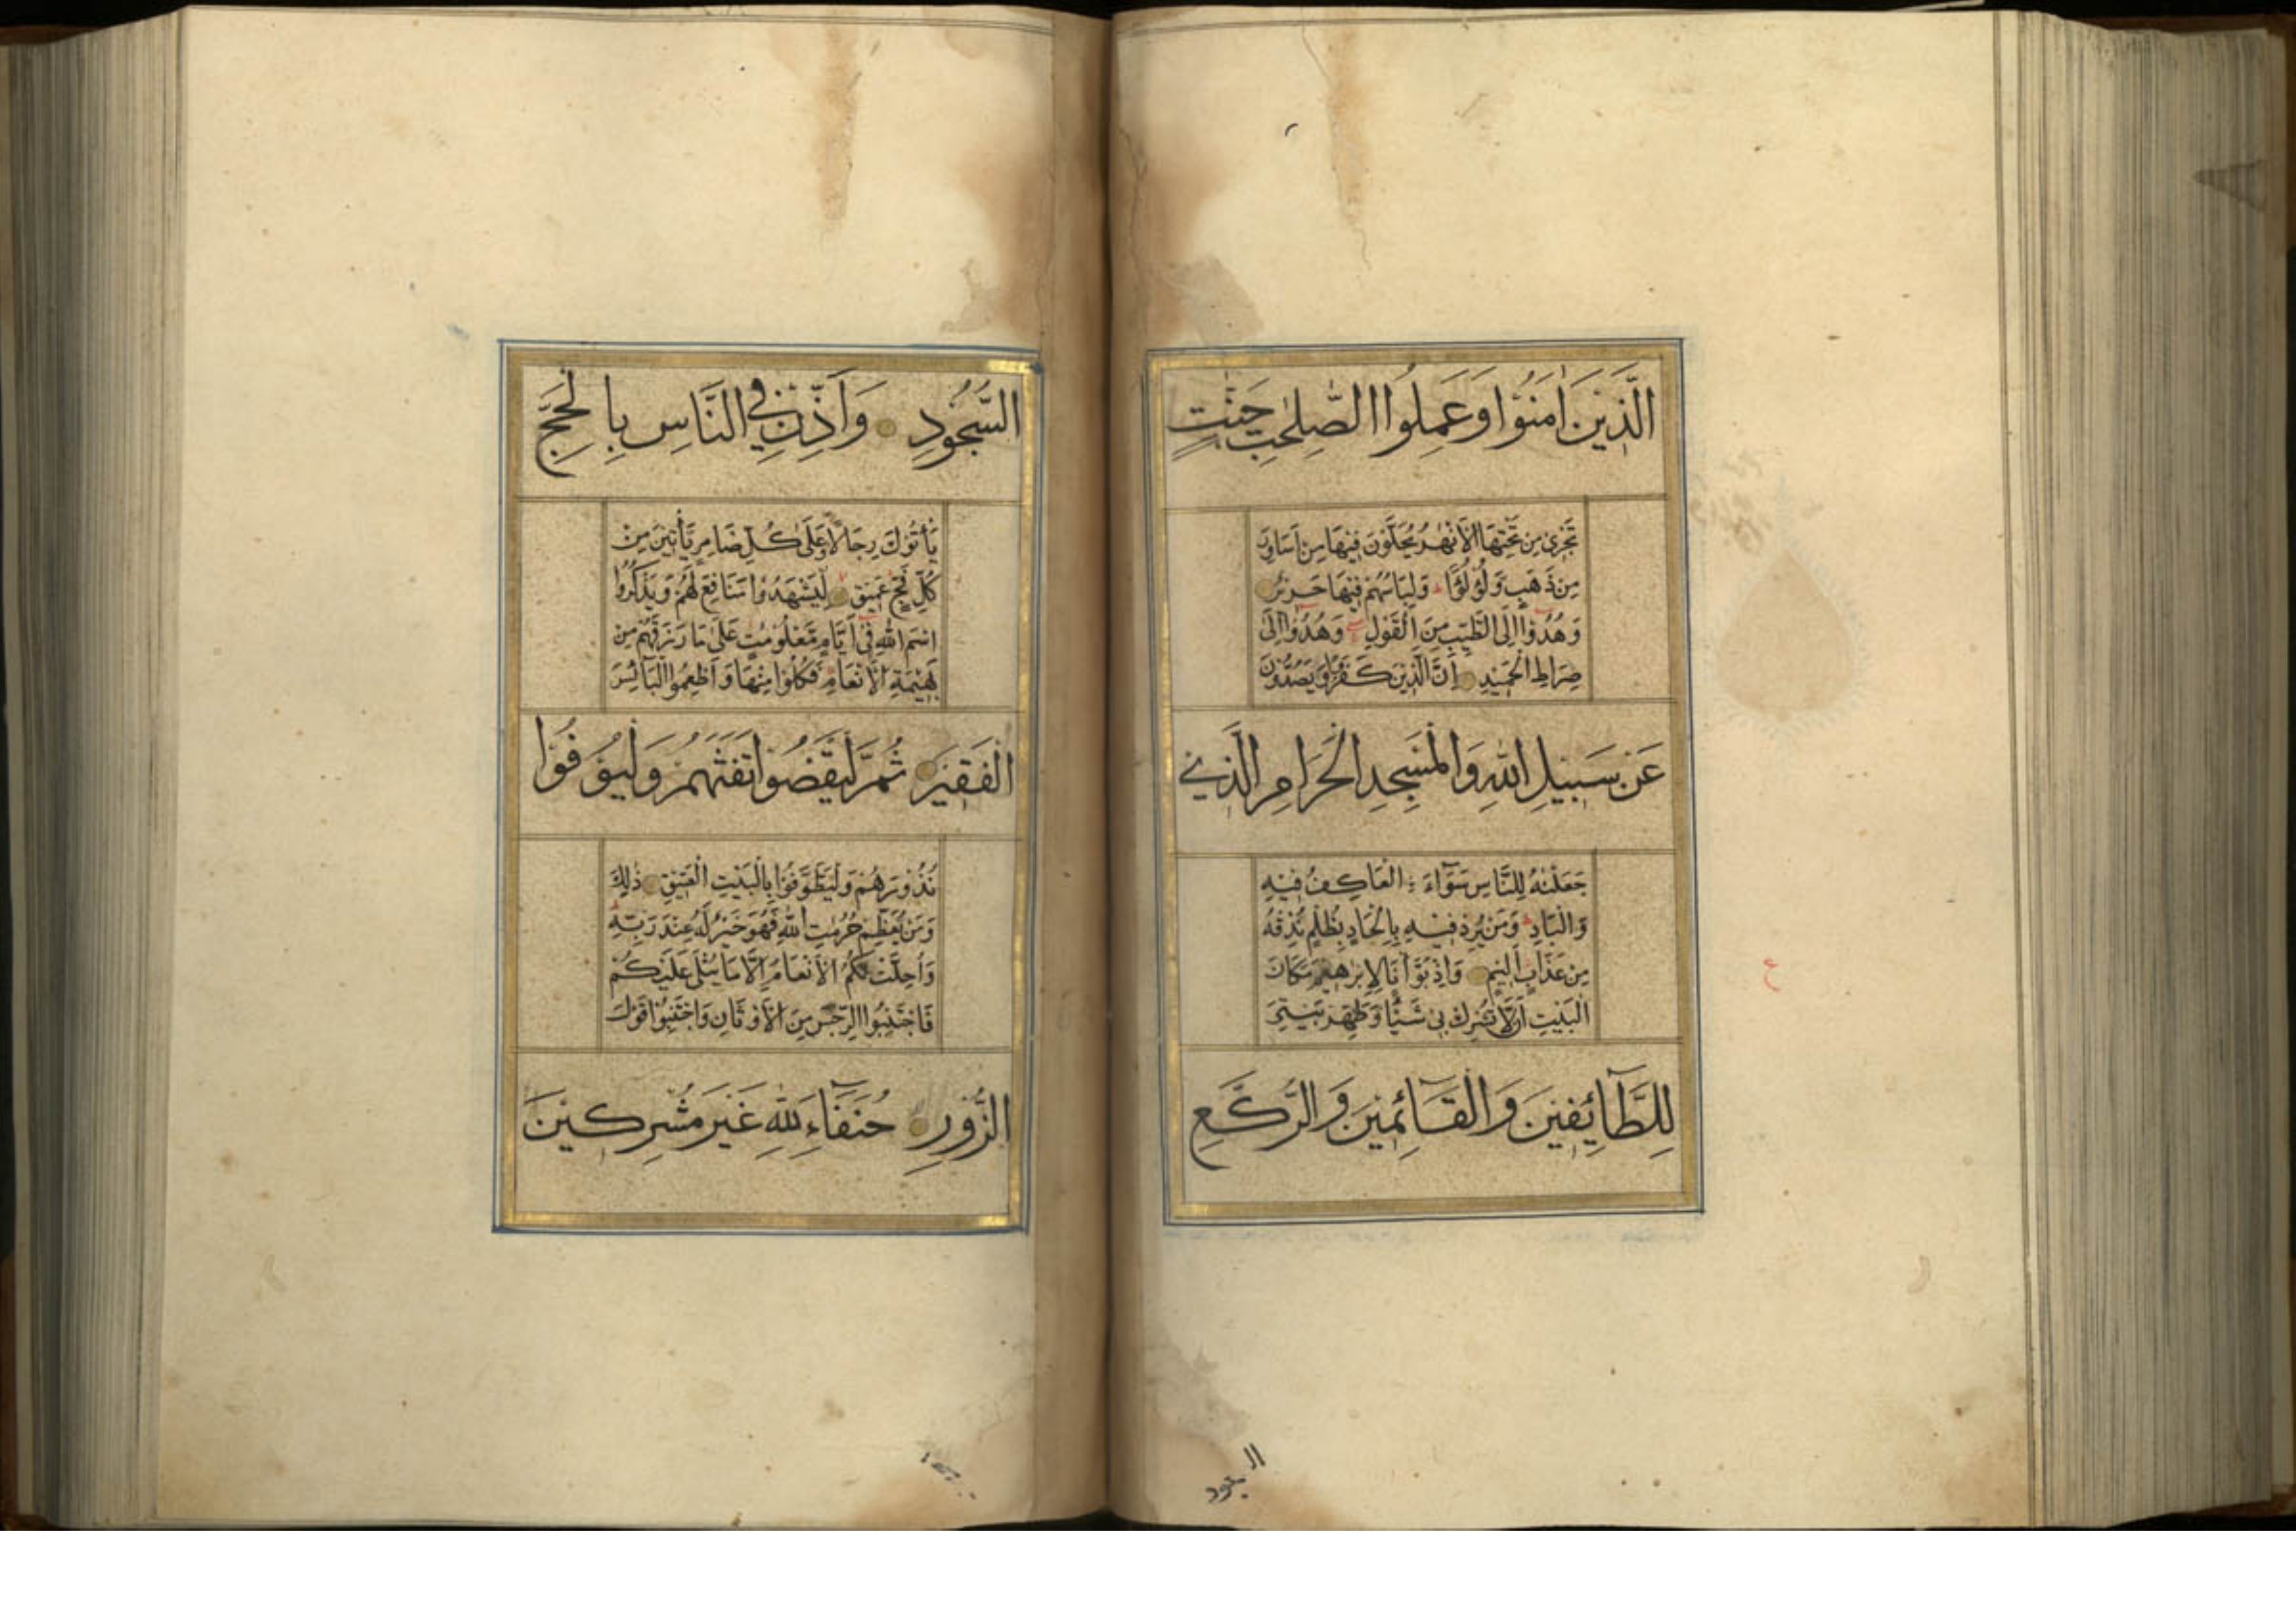 الَّذِيْنَ اٰمَنُوْا وَعَمِلُوا الصّٰلِحٰتِ جَنّٰتٍ
تَجْرِيْ مِنْ تَحْتِهَا الْاَنْهٰرُ يُحَلَّوْنَ فِيْهَا مِنْ اَسَاوِرَ
مِنْ ذَهَبٍ وَّلُؤْلُؤًا ۖ وَلِبَاسُهُمْ فِيْهَا حَرِيْرٌ
وَهُدُوْٓا اِلَى الطَّيِّبِ مِنَ الْقَوْلِ ۖ وَهُدُوْٓا اِلٰى
صِرَاطِ الْحَمِيْدِ اِنَّ الَّذِيْنَ كَفَرُوْا وَيَصُدُّوْنَ
عَنْ سَبِيْلِ اللّٰهِ وَالْمَسْجِدِ الْحَرَامِ الَّذِيْ
جَعَلْنٰهُ لِلنَّاسِ سَوَآءَ ۨ الْعَاكِفُ فِيْهِ
وَالْبَادِ ۚ وَمَنْ يُّرِدْ فِيْهِ بِاِلْحَادٍ بِظُلْمٍ نُّذِقْهُ
مِنْ عَذَابٍ اَلِيْمٍ وَاِذْ بَوَّاْنَا لِاِبْرٰهِيْمَ مَكَانَ
الْبَيْتِ اَنْ لَّا تُشْرِكْ بِيْ شَيْئًا وَّطَهِّرْ بَيْتِيَ
لِلطَّآئِفِيْنَ وَالْقَآئِمِيْنَ وَالرُّكَّعِ
ع
السُّجُوْدِ وَاَذِّنْ فِي النَّاسِ بِالْحَجِّ
يَأْتُوْكَ رِجَالًا وَّعَلٰى كُلِّ ضَامِرٍ يَّأْتِيْنَ مِنْ
كُلِّ فَجٍّ عَمِيْقٍ لِّيَشْهَدُوْا مَنَافِعَ لَهُمْ وَيَذْكُرُوا
اسْمَ اللّٰهِ فِيْٓ اَيَّامٍ مَّعْلُوْمٰتٍ عَلٰى مَا رَزَقَهُمْ مِنْ
بَهِيْمَةِ الْاَنْعَامِ ۚ فَكُلُوْا مِنْهَا وَاَطْعِمُوا الْبَآئِسَ
الْفَقِيْرَ ثُمَّ لْيَقْضُوْا تَفَثَهُمْ وَلْيُوْفُوْا
نُذُوْرَهُمْ وَلْيَطَّوَّفُوْا بِالْبَيْتِ الْعَتِيْقِ ذٰلِكَ
وَمَنْ يُّعَظِّمْ حُرُمٰتِ اللّٰهِ فَهُوَ خَيْرٌ لَّهٗ عِنْدَ رَبِّهٖ ۗ
وَاُحِلَّتْ لَكُمُ الْاَنْعَامُ اِلَّا مَا يُتْلٰى عَلَيْكُمْ
فَاجْتَنِبُوا الرِّجْسَ مِنَ الْاَوْثَانِ وَاجْتَنِبُوْا قَوْلَ
الزُّوْرِ حُنَفَآءَ لِلّٰهِ غَيْرَ مُشْرِكِيْنَ